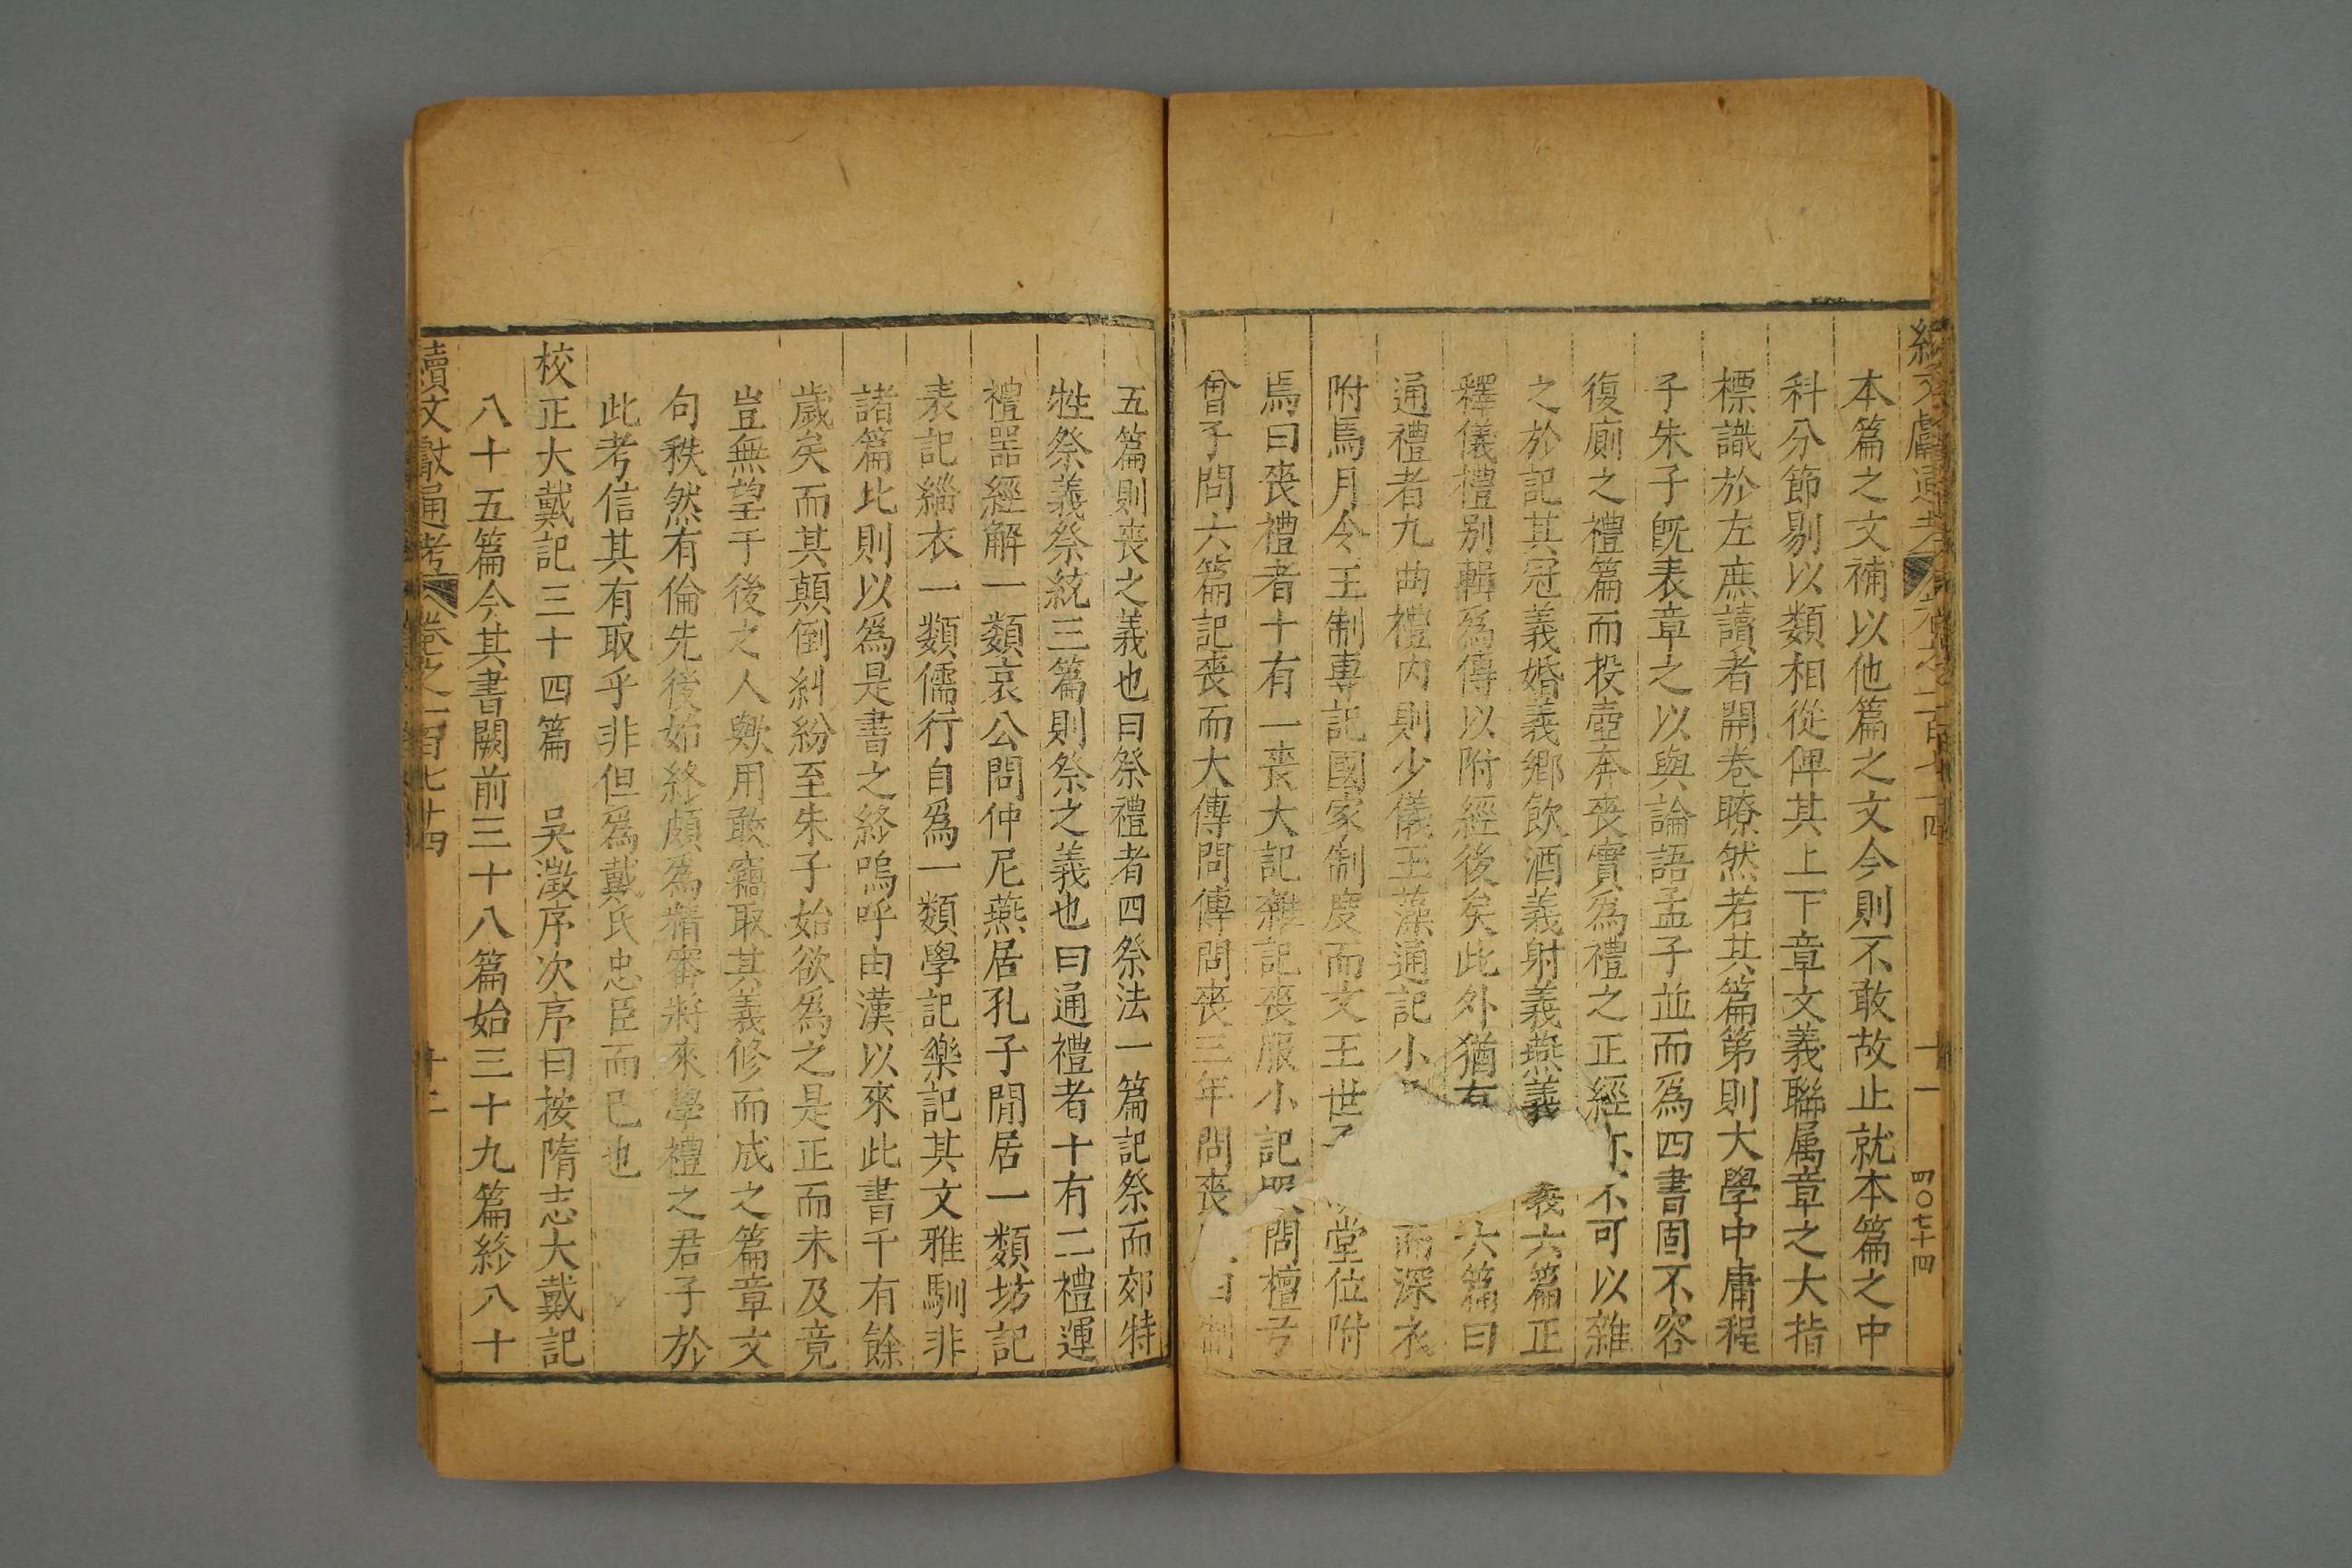 續文獻通考 卷之一百七十四 十一 四〇七十四
本篇之文補以他篇之文今則不敢故止就本篇之中
科分節剔以類相從俾其上下章文義聯属章之大指
標識於左庶讀者開卷瞭然若其篇第則大學中庸程
子朱子旣表章之以與論語孟子並而爲四書固不容
復廁之禮篇而投壺奔喪實爲禮之正經亦不可以雜
之於記其冠義婚義鄉飲酒義射義燕義義六篇正
釋儀禮别輯爲傳以附經後矣此外猶六篇曰
通禮者九曲禮内則少儀玉藻通記小而深衣
附焉月令王制專記國家制度而文王世堂位附
焉曰喪禮者十有一喪大記雜記喪服小記問檀弓
曾子問六篇記喪而大傳問傳問喪三年問喪制
五篇則喪之義也曰祭禮者四祭法一篇記祭而郊特
牲祭義祭統三篇則祭之義也曰通禮者十有二禮運
禮器經解一類哀公問仲尼燕居孔子閒居一類坊記
表記緇衣一類儒行自爲一類學記樂記其文雅馴非
諸篇比則以爲是書之終嗚呼由漢以來此書千有餘
歲矣而其顛倒糾紛至朱子始欲爲之是正而未及竟
豈無望于後之人歟用敢竊取其義修而成之篇章文
句秩然有倫先後始終頗爲精審將來學禮之君子於
此考信其有取乎非但爲戴氏忠臣而已也
校正大戴記三十四篇 吳澂序次序曰按隋志大戴記
八十五篇今其書闕前三十八篇始三十九篇終八十
續文獻通考 卷之一百七十四 十二